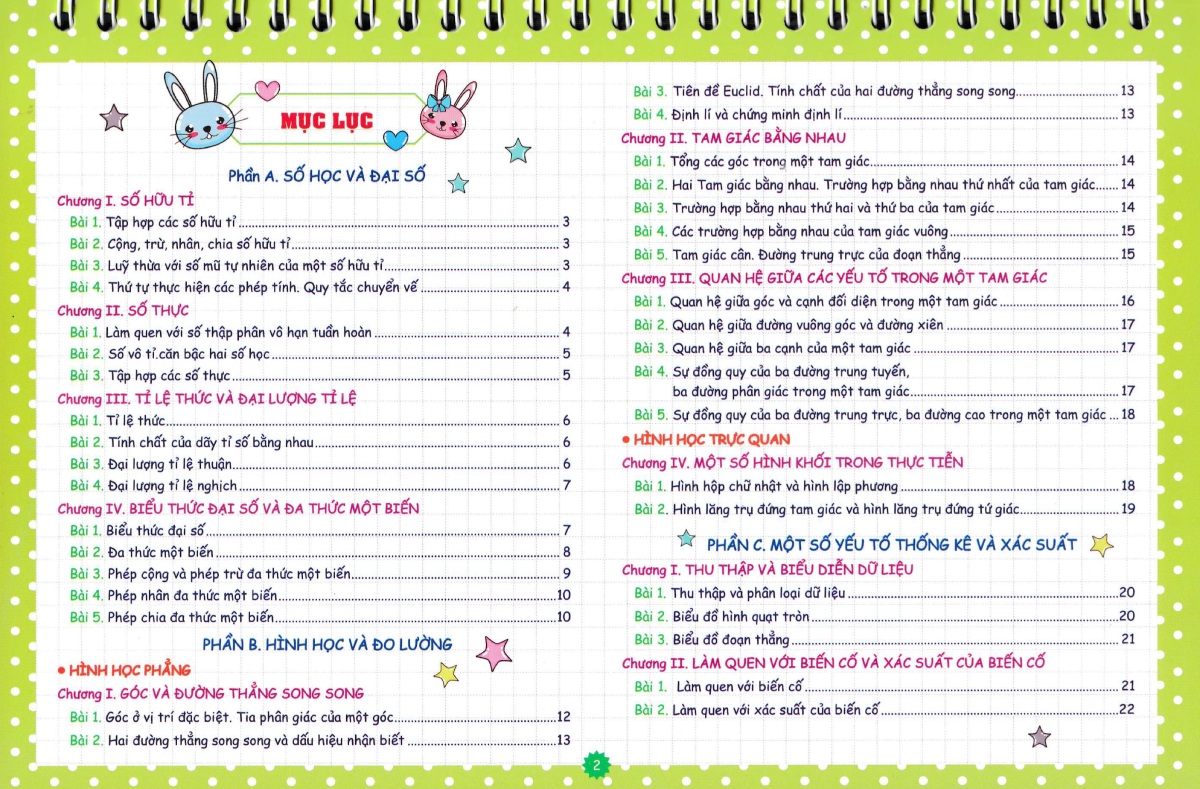 MỤC LỤC
Phần A. SỐ HỌC VÀ ĐẠI SỐ
Chương I. SỐ HỮU TỈ
Bài 1. Tập hợp các số hữu tỉ ........ 3
Bài 2. Cộng, trừ, nhân, chia số hữu tỉ ........ 3
Bài 3. Luỹ thừa với số mũ tự nhiên của một số hữu tỉ ........ 3
Bài 4. Thứ tự thực hiện các phép tính. Quy tắc chuyển vế ........ 4
Chương II. SỐ THỰC
Bài 1. Làm quen với số thập phân vô hạn tuần hoàn ........ 4
Bài 2. Số vô tỉ.căn bậc hai số học ........ 5
Bài 3. Tập hợp các số thực ........ 5
Chương III. TỈ LỆ THỨC VÀ ĐẠI LƯỢNG TỈ LỆ
Bài 1. Tỉ lệ thức ........ 6
Bài 2. Tính chất của dãy tỉ số bằng nhau ........ 6
Bài 3. Đại lượng tỉ lệ thuận ........ 6
Bài 4. Đại lượng tỉ lệ nghịch ........ 7
Chương IV. BIỂU THỨC ĐẠI SỐ VÀ ĐA THỨC MỘT BIẾN
Bài 1. Biểu thức đại số ........ 7
Bài 2. Đa thức một biến ........ 8
Bài 3. Phép cộng và phép trừ đa thức một biến ........ 9
Bài 4. Phép nhân đa thức một biến ........ 10
Bài 5. Phép chia đa thức một biến ........ 10
PHẦN B. HÌNH HỌC VÀ ĐO LƯỜNG
• HÌNH HỌC PHẲNG
Chương I. GÓC VÀ ĐƯỜNG THẲNG SONG SONG
Bài 1. Góc ở vị trí đặc biệt. Tia phân giác của một góc ........ 12
Bài 2. Hai đường thẳng song song và dấu hiệu nhận biết ........ 13
Bài 3. Tiên đề Euclid. Tính chất của hai đường thẳng song song ........ 13
Bài 4. Định lí và chứng minh định lí ........ 13
Chương II. TAM GIÁC BẰNG NHAU
Bài 1. Tổng các góc trong một tam giác ........ 14
Bài 2. Hai Tam giác bằng nhau. Trường hợp bằng nhau thứ nhất của tam giác ...... 14
Bài 3. Trường hợp bằng nhau thứ hai và thứ ba của tam giác ........ 14
Bài 4. Các trường hợp bằng nhau của tam giác vuông ........ 15
Bài 5. Tam giác cân. Đường trung trực của đoạn thẳng ........ 15
Chương III. QUAN HỆ GIỮA CÁC YẾU TỐ TRONG MỘT TAM GIÁC
Bài 1. Quan hệ giữa góc và cạnh đối diện trong một tam giác ........ 16
Bài 2. Quan hệ giữa đường vuông góc và đường xiên ........ 17
Bài 3. Quan hệ giữa ba cạnh của một tam giác ........ 17
Bài 4. Sự đồng quy của ba đường trung tuyến,
ba đường phân giác trong một tam giác ........ 17
Bài 5. Sự đồng quy của ba đường trung trực, ba đường cao trong một tam giác ... 18
• HÌNH HỌC TRỰC QUAN
Chương IV. MỘT SỐ HÌNH KHỐI TRONG THỰC TIỄN
Bài 1. Hình hộp chữ nhật và hình lập phương ........ 18
Bài 2. Hình lăng trụ đứng tam giác và hình lăng trụ đứng tứ giác ........ 19
PHẦN C. MỘT SỐ YẾU TỐ THỐNG KÊ VÀ XÁC SUẤT
Chương I. THU THẬP VÀ BIỂU DIỄN DỮ LIỆU
Bài 1. Thu thập và phân loại dữ liệu ........ 20
Bài 2. Biểu đồ hình quạt tròn ........ 20
Bài 3. Biểu đồ đoạn thẳng ........ 21
Chương II. LÀM QUEN VỚI BIẾN CỐ VÀ XÁC SUẤT CỦA BIẾN CỐ
Bài 1. Làm quen với biến cố ........ 21
Bài 2. Làm quen với xác suất của biến cố ........ 22
2